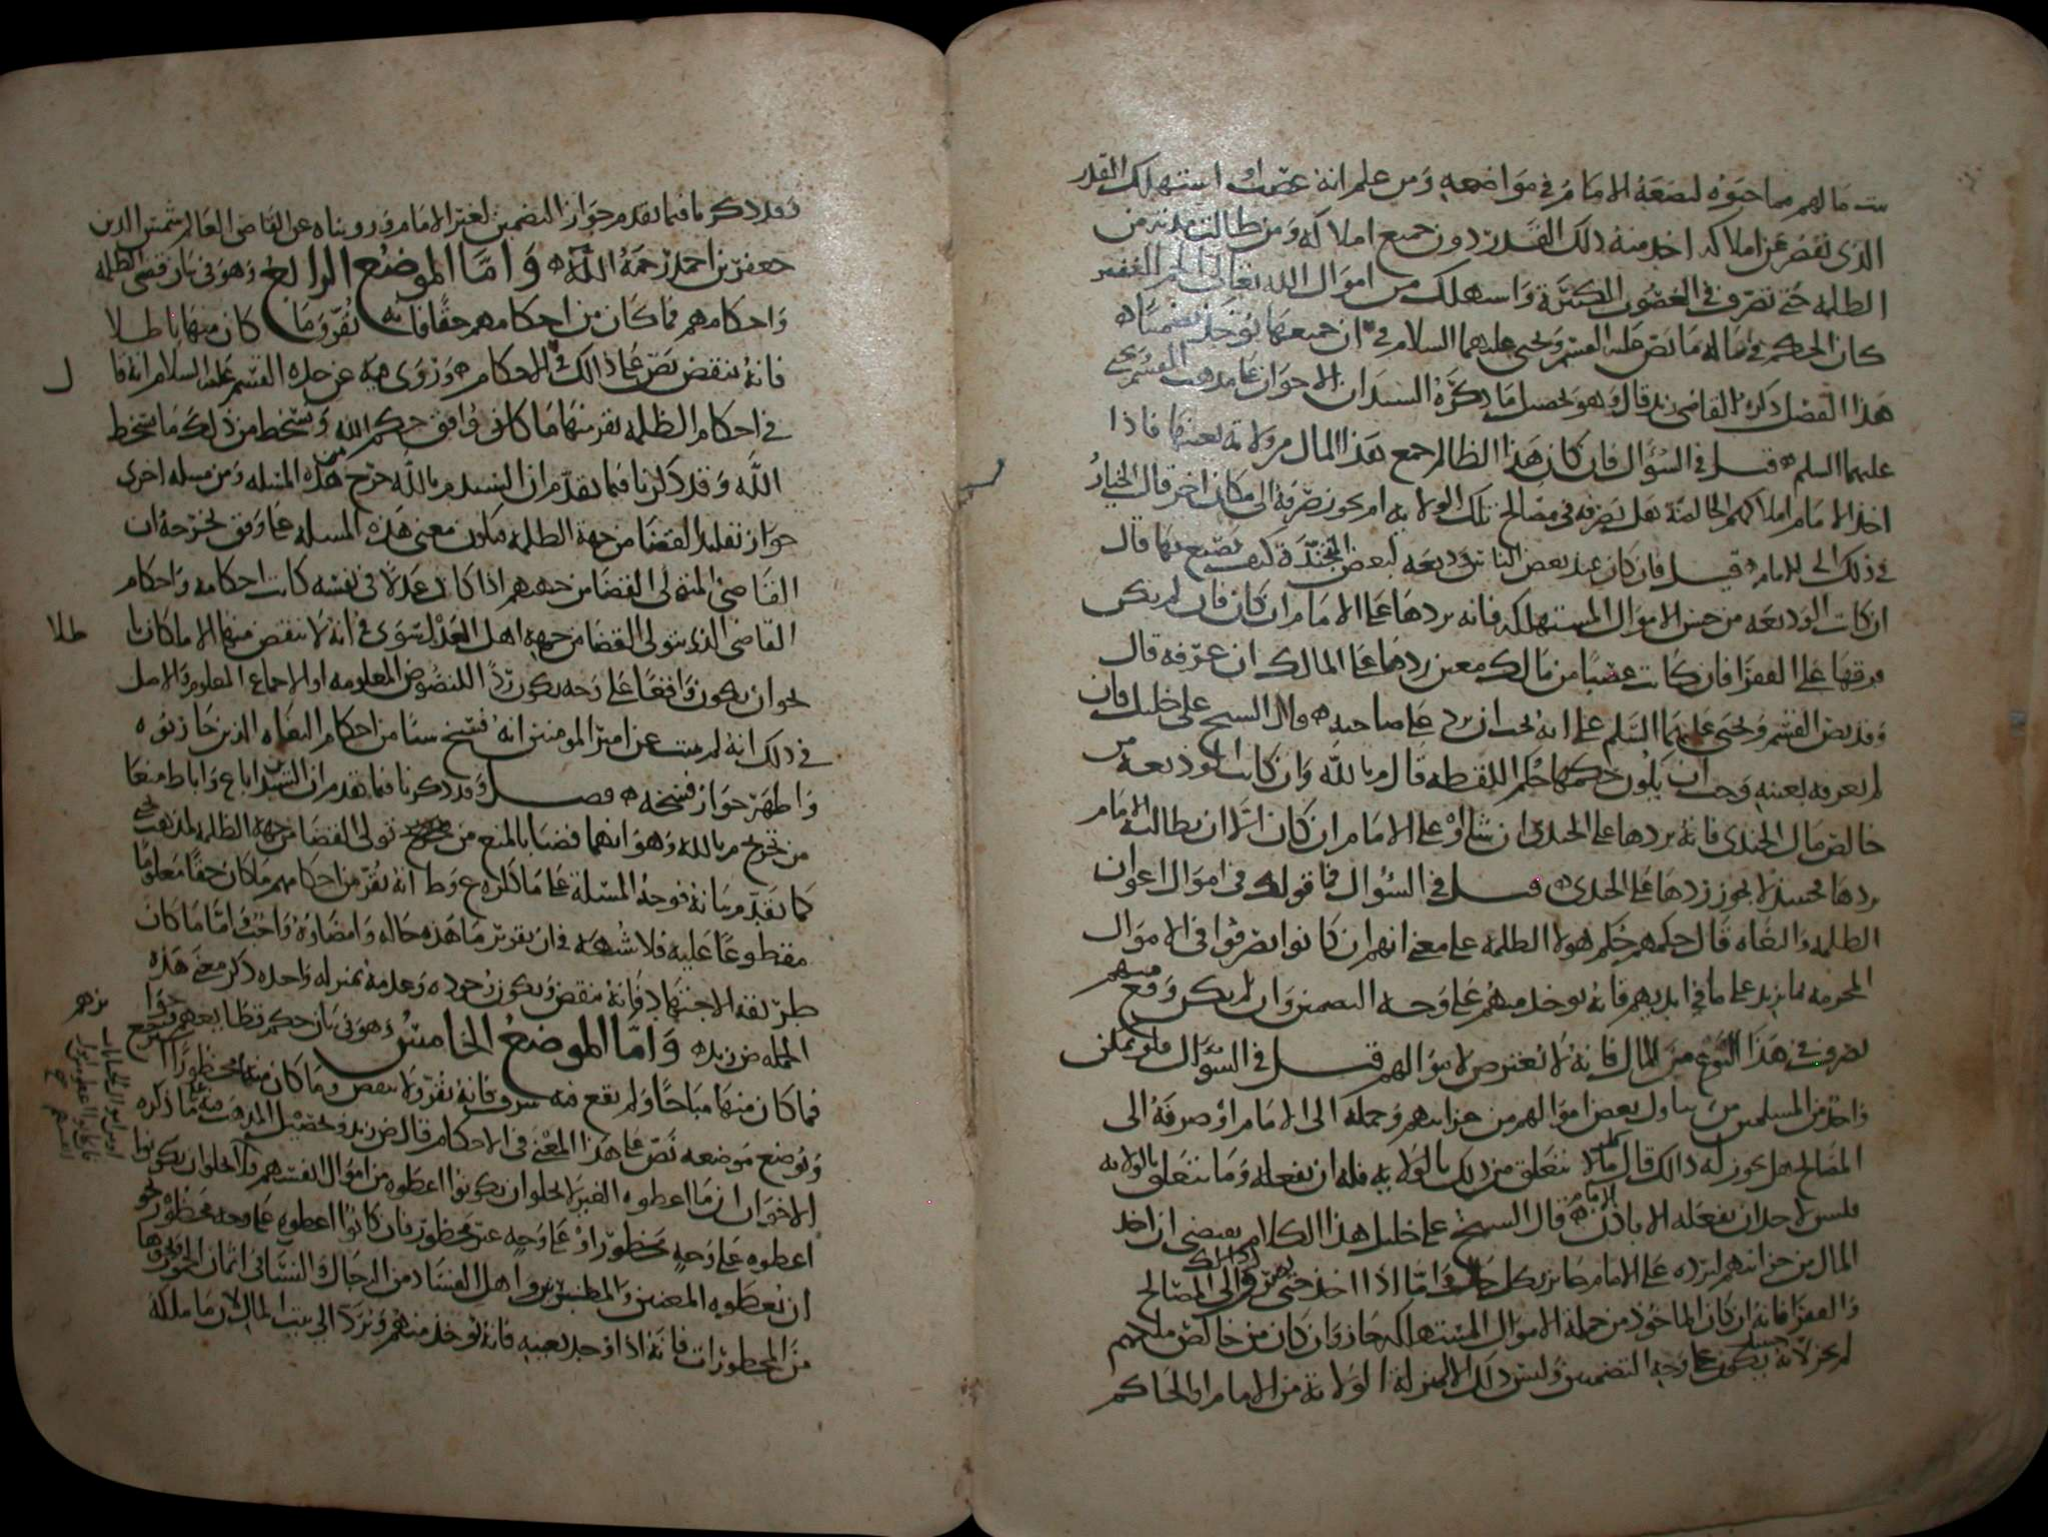 بيت مالهم مما حبوه ليضعه الامام في مواضعه ومن علم انه غصب او استهلك القدر
الذي نقص عن املاكه اخذ منه ذلك القدر دون جميع املاكه ومن طالت مدته من
الظلمة حتى تصرف في الغصوب الكثيرة واستهلك من اموال الله تعالى الجم الغفير
كان الحكم في ماله ما نص عليه القسم ويحيى عليهما السلام في ان جميعها يؤخذ تضمينا
هذا الفصل ذكره القاضي زيد قال وهو تحصيل ما ذكره السيدان الاخوان على مذهب القسم ويحيى
عليهما السلم قيل في السؤال فان كان هذا الظالم جمع هذا المال من ولاية بعينها فاذا
اخذ الامام املاكهم الحالية هل يصرفه في مصالح تلك الولاية ام يجوز صرفه الى مكان اخر قال الخيار
في ذلك الى الامام قيل فان كان عند بعض الناس وديعة لبعض الجند كيف يصنع بها قال
ان كانت الوديعة من جنس الاموال المستهلكة فانه يردها على الامام ان كان فان لم يكن
فرقها على الفقرا فان كانت غصبا من مالك معين ردها على المالك ان عرفه قال
وقد نص القسم ويحيى عليهما السلم على انه يجب ان يرد على صاحبه قال الشيخ علي خليل فان
لم يعرفه بعينه وجب ان يكون حكمها حكم اللقطة قال م بالله وان كانت الوديعة من
خالص مال الجندي فانه يردها على الجندي ان شا او على الامام ان كان الا ان يطالبه الامام
بردها فحينئذ لا يجوز ردها على الجندي قيل في السؤال فما قولك في اموال اعوان
الظلمة والبغاة قال حكمهم حكم هولا الظلمة على معنى انهم ان كانوا تصرفوا في الاموال
المحرمة بما يزيد على ما في ايديهم فانه يوخذ منهم على وجه التضمين وان لم يكن وقع منهم
تصرف في هذا النوع من المال فانه لا يعترض لاموالهم قيل في السؤال فلو تمكن
واحد من المسلمين من تناول بعض اموالهم من خزائنهم وحمله الى الامام او صرفه الى
المصالح هل يجوز له ذالك قال ما لا يتعلق من ذلك بالولاية فله ان يفعله وما يتعلق بالولاية
فليس لاحد ان يفعله الا باذن الامام قال الشيخ علي خليل هذا الكلام يقتضي ان اخذ
المال من خزائنهم ليرده على الامام جائز بكل حال واما اذا اخذ حتى يصرف ذلك الى المصالح
والفقرا فانه ان كان الماخوذ من جملة الاموال المستهلكة جاز وان كان من خالص ملكهم
لم يجز لانه حينئذ يكون على وجه التضمين وليس ذلك الا لمن له الولاية من الامام او الحاكم
وقد ذكرنا فيما تقدم جواز التضمين لغير الامام ورويناه عن القاضي العالم شمس الدين
جعفر بن احمد رحمه الله واما الموضع الرابع وهو في بيان قضى الظلمة
واحكامهم فما كان من احكامهم حقا فانه يقر وما كان منها باطلا
فانه ينقض نص على ذالك في الاحكام وروى فيه عن جده القسم عليه السلام انه قال
في احكام الظلمة يقر منها ما كان وافق حكم الله ويسخط من ذلك ما سخط
الله وقد ذكرنا فيما تقدم ان السيد م بالله خرج من هذه المسلة ومن مسلة اخرى
جواز تقليد القضا من جهة الظلمة فيكون معنى هذه المسلة على وفق تخريجه ان
القاضي المتولي القضا من جهتهم اذا كان عدلا في نفسه كانت احكامه واحكام
القاضي الذي يتولى القضا من جهة اهل العدل سوى في انه لا ينقض منها الا ما كان باطلا
نحو ان يكون واقعا على وجه يكون ردا للنصوص المعلومة او الاجماع المعلوم والاصل
في ذلك انه لم يثبت عن امير المومنين انه فسخ شيئا من احكام البغاة الذين حاربوه
واظهر جواز فسخه فصل وقد ذكرنا فيما تقدم ان السيدين ابا ع وابا ط منعا
من تخريج م بالله وهو انهما قضيا بالمنع من تولي القضا من جهة الظلمة لمذهب يحيى
كما تقدم بيانه فوجه المسلة على ما ذكره ع وط انه يقر من احكامهم ما كان حقا معلوما
مقطوعا عليه فلا شبهة في ان تقرير ما هذه حاله وامضاوه واجب فاما ما كان
طريقه الاجتهاد فانه ينقض ويكون وجوده وعدمه بمنزلة واحدة ذكر معنى هذه
الجملة ض زيد واما الموضع الخامس وهو في بيان حكم قطايعهم وجوايزهم
فما كان منها مباحا ولم يقع فيه سرف فانه يقر ولا ينقض وما كان منها محظورا استرجع
ويوضع موضعه نص على هذا المعنى في الاحكام قال ض زيد وتحصيل المذهب فيه على ما ذكره
الاخوان ان ما اعطوه الغير لا يخلو ان يكونوا اعطوه من اموال انفسهم فلا يخلو ان يكونوا
اعطوه على وجه محظور او على وجه غير محظور فان كانوا اعطوه على وجه محظور نحو
ان يعطوه المغنين والمطنبرين واهل الفساد من الرجال والنسا في اثمان الخمور ونحوها
من المحظورات فانه اذا وجد بعينه فانه يوخذ منهم ويرد الى بيت المال لان ما ملكه